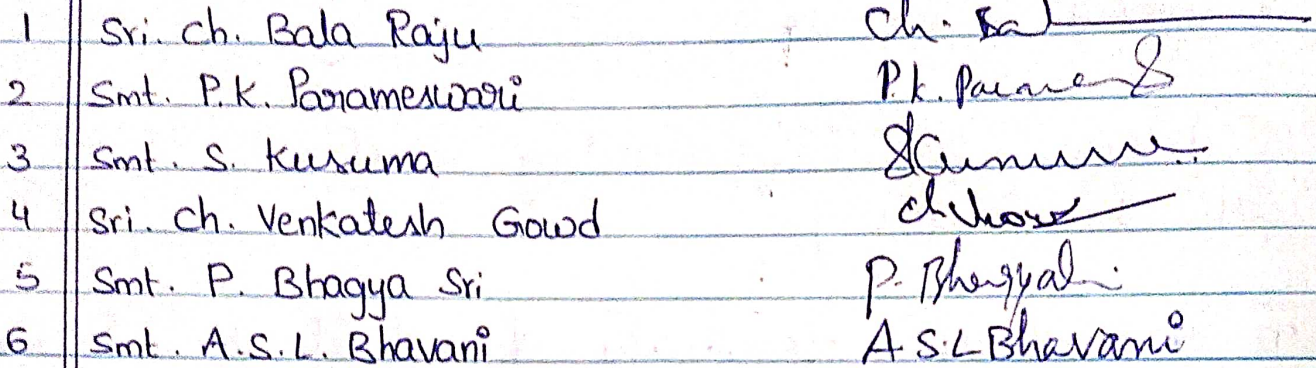 1 Sri. Ch. Bala Raju Ch. Bal
2 Smt. P.K. Parameswari P.K. Parame
3 Smt. S. Kusuma
4 Sri. Ch. Venkatesh Gowd
5 Smt. P. Bhagya Sri P. Bhagya
6 Smt. A.S.L. Bhavani A.S.L Bhavani